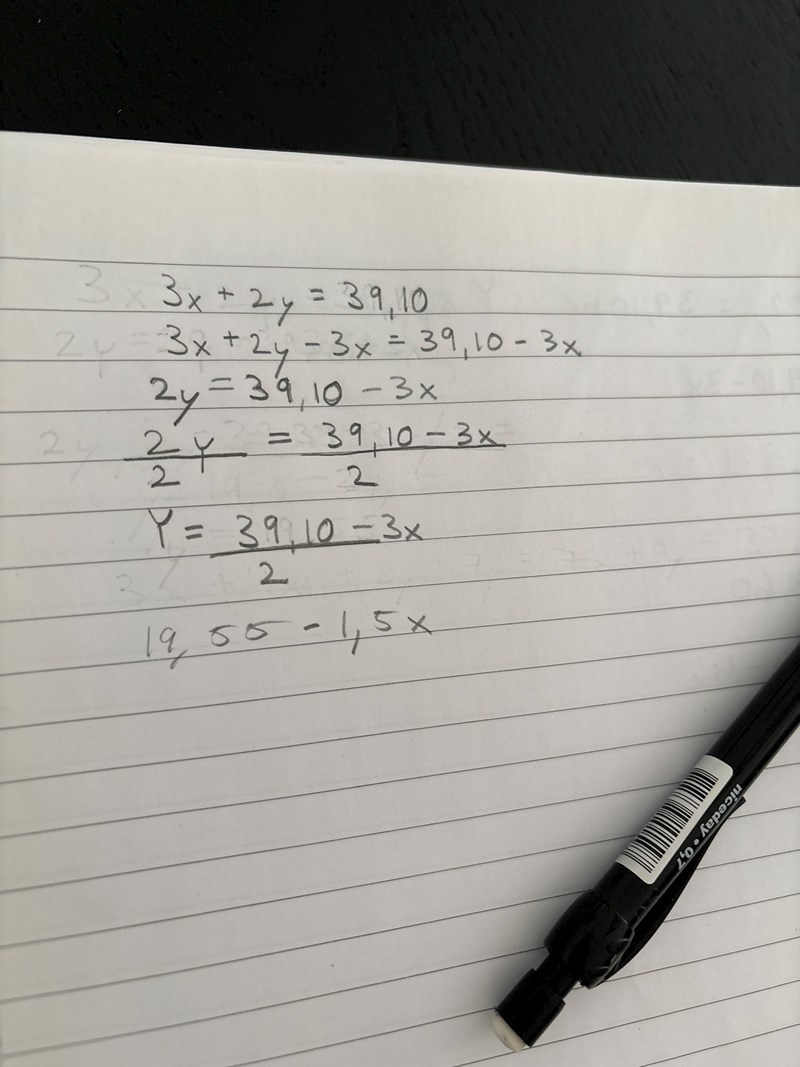 3x + 2y = 39,10
3x + 2y - 3x = 39,10 - 3x
2y = 39,10 - 3x
2y/2 = 39,10 - 3x/2
Y = 39,10 - 3x/2
19,55 - 1,5x
niceday • 0,7